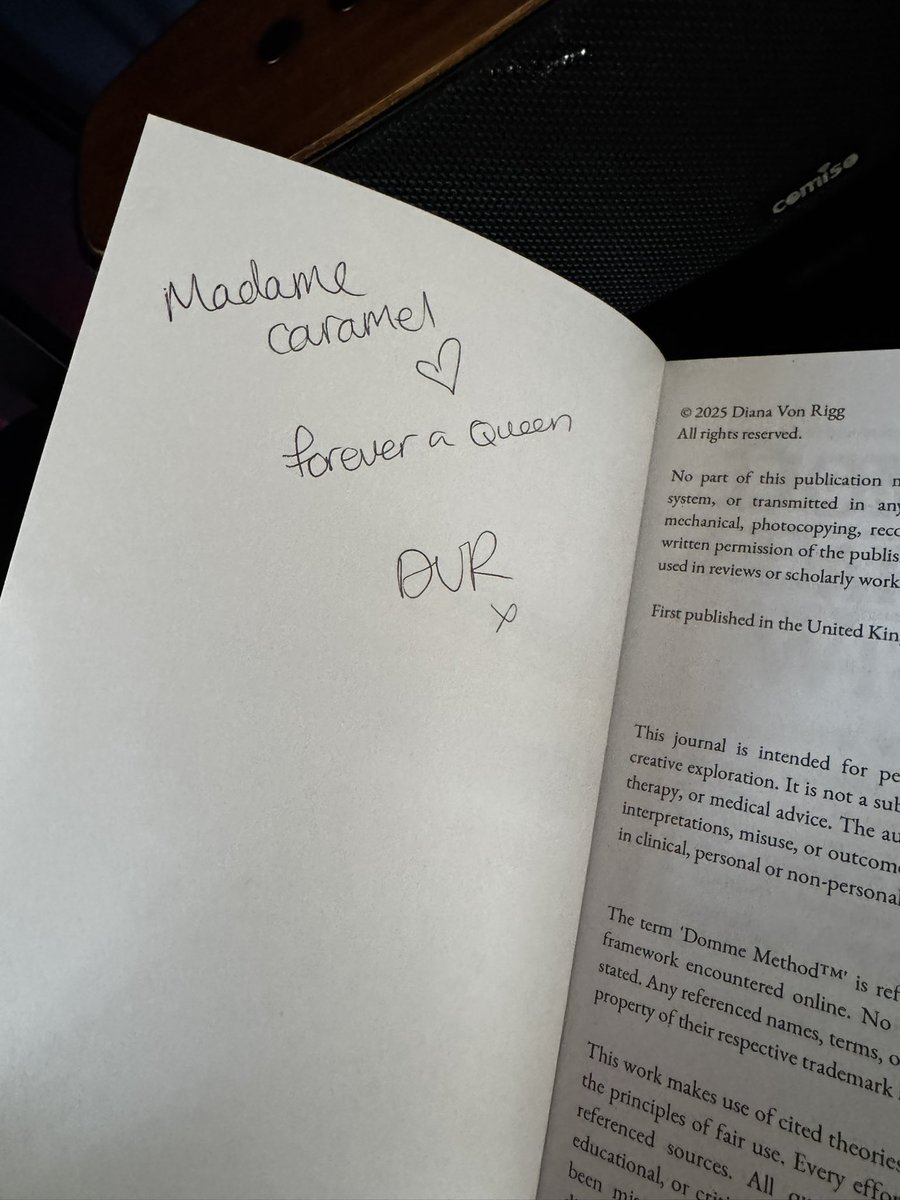 comiso
Madame
caramel
forever a Queen
DVR
x
© 2025 Diana Von Rigg
All rights reserved.
No part of this publication
system, or transmitted in any
mechanical, photocopying,
written permission of the
used in reviews or scholarly work
First published in the United
This journal is intended for
creative exploration. It is not a
therapy, or medical advice. The
interpretations, misuse, or
in clinical, personal or
The term ‘Domme Method™’ is
framework encountered online. No
stated. Any referenced names, terms,
property of their respective trademark
This work makes use of cited theories
the principles of fair use. Every
referenced sources. All
educational, or
been